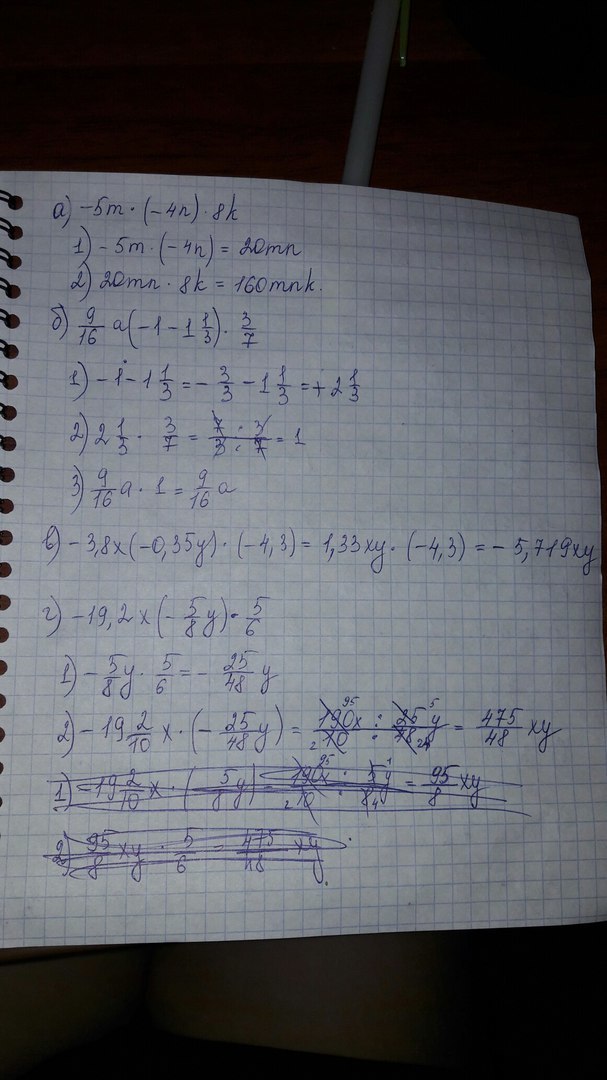 а) -5m · (-4n) · 8k
1) -5m · (-4n) = 20mn
2) 20mn · 8k = 160mnk.
б) 9/16 a(-1 - 1 1/3) · 3/7
1) -1 - 1 1/3 = -3/3 - 1 1/3 = +2 1/3
2) 2 1/3 · 3/7 = 7 · 3 / 3 · 7 = 1
3) 9/16 a · 1 = 9/16 a
в) -3,8x(-0,35y) · (-4,3) = 1,33xy · (-4,3) = -5,719xy
г) -19,2x(-5/8 y) · 5/6
1) -5/8 y · 5/6 = -25/48 y
2) -19 2/10 x · (-25/48 y) = 190x/10 : 25y/48 = 475/48 xy
1) -19 2/10 x · (-5/8 y) = 190x/10 · 5y/8 = 95/8 xy
2) 95/8 xy · 5/6 = 475/48 xy